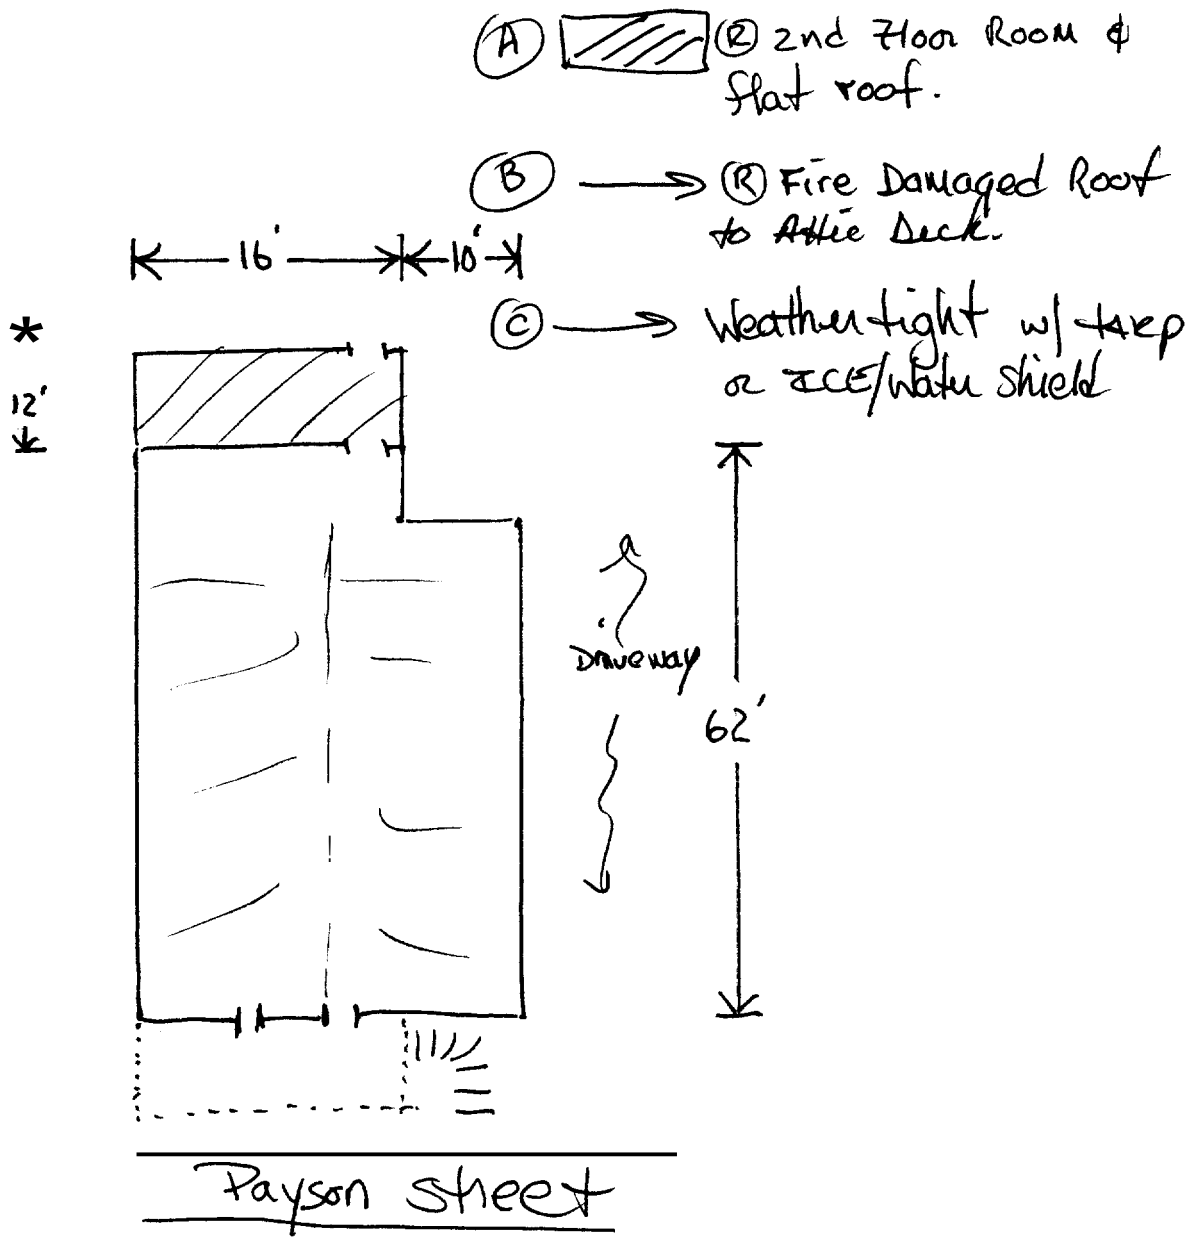 A R 2nd Floor Room &
flat roof.
B R Fire Damaged Roof
to Attic Deck.
C Weathertight w/ tarp
or ICE/Water Shield
16' 10'
*
12'
Driveway
62'
Payson Street